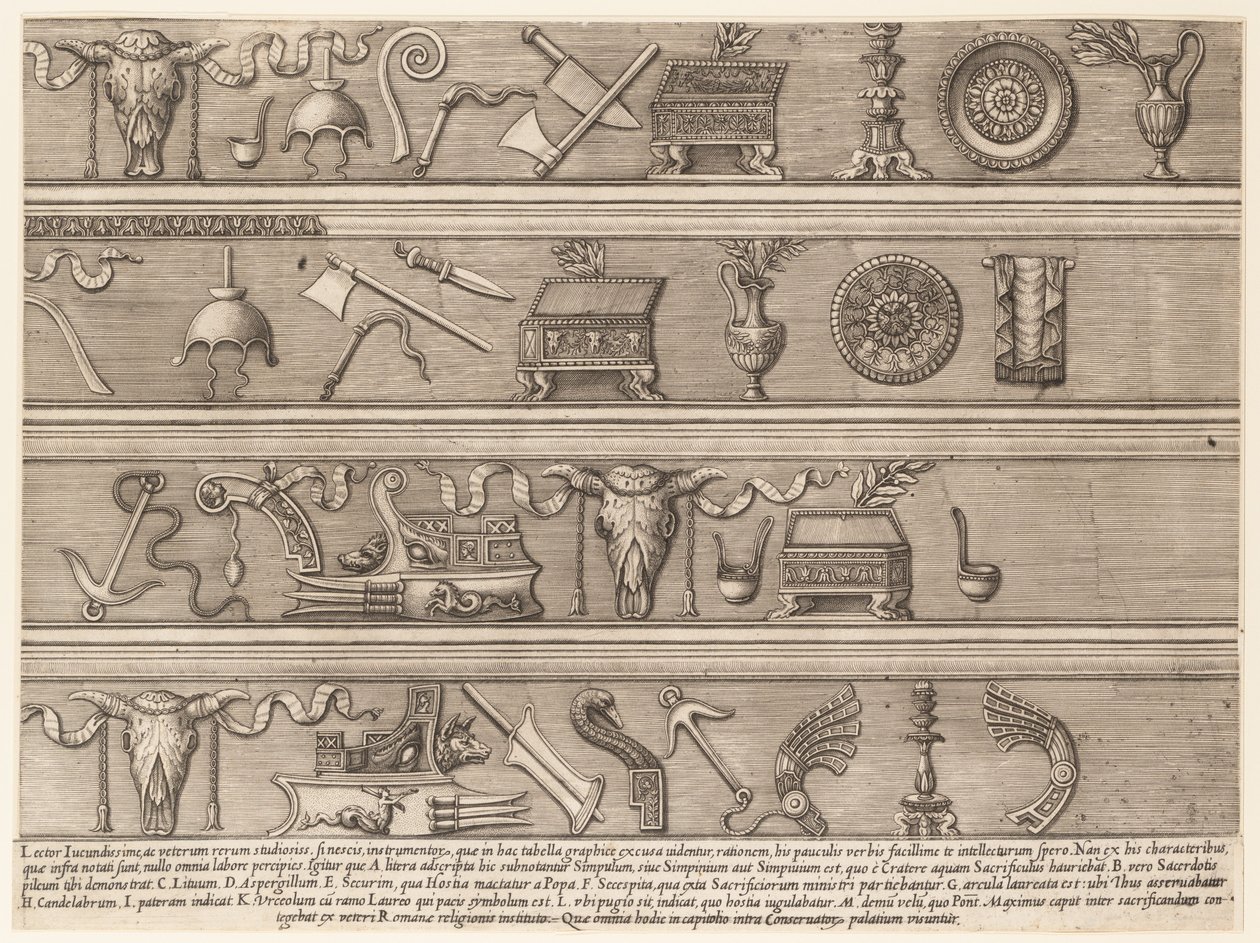 Lector Iucundissime, ac veterum rerum studiosiss. si nescis, instrumentorꝫ, quæ in hac tabella graphice excusa uidentur, rationem, his pauculis verbis facillime te intellecturum spero. Nan ex his characteribus,
quæ infra notati sunt, nullo omnia labore percipies. Igitur que A litera adscripta hic subnotantur Simpulum, siue Simpinium aut Simpiuium est, quo è Cratere aquam Sacrificulus hauriebat. B, vero Sacerdotis
pileum tibi demonstrat. C. Lituum, D. Aspergillum. E. Securim, qua Hostia mactatur a Popa. F. Secespita, qua exta Sacrificiorum ministri partiebantur. G, arcula laureata est: ubi Thus asseruabatur
H, Candelabrum, I, pateram indicat. K. Vrceolum cū ramo Laureo qui pacis symbolum est. L. vbi pugio sit, indicat, quo hostia iugulabatur. M, demū velū, quo Pont. Maximus caput inter sacrificandum con-
tegebat ex veteri Romanæ religionis instituto. — Quæ omnia hodie in capitolio intra Conseruatorꝫ palatium visuntur.